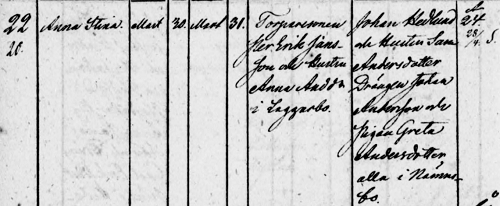 22
20.
Anna Stina
Mart
30.
Mart
31.
Torparesonen
Per Erik Jans-
son och Hustru
Anna Andd:r
i Laggarbo.
Johan Hedlund
och Hustru Sara
Andersdotter
Drängen Johan
Andersson och
Pigan Greta
Andersdotter
alla i
bo.
24